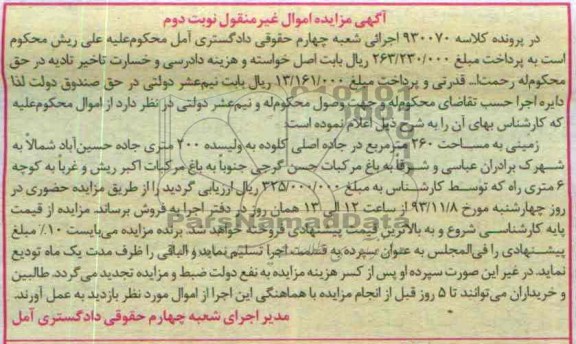 آگهی مزایده اموال غیر منقول نوبت دوم
در پرونده کلاسه ۹۳۰۰۷۰ اجرائی شعبه چهارم حقوقی دادگستری آمل محکوم‌علیه علی ریش محکوم
است به پرداخت مبلغ ۲۶۳/۲۳۰/۰۰۰ ریال بابت اصل خواسته و هزینه دادرسی و خسارت تاخیر تادیه در حق
محکوم‌له رحمت‌ا... قدرتی و پرداخت مبلغ ۱۳/۱۶۱/۰۰۰ ریال بابت نیم‌عشر دولتی در حق صندوق دولت لذا
دایره اجرا حسب تقاضای محکوم‌له و جهت وصول محکوم‌له و نیم‌عشر دولتی در نظر دارد از اموال محکوم‌علیه
که کارشناس بهای آن را به شرح ذیل اعلام نموده است:
زمینی به مساحت ۲۶۰ مترمربع در جاده اصلی کلوده به ولیسده ۲۰۰ متری جاده حسین‌آباد شمالاً به
شهرک برادران عباسی و شرقاً به باغ مرکبات حسن گرجی جنوباً به باغ مرکبات اکبر ریش و غرباً به کوچه
۶ متری راه که توسط کارشناس به مبلغ ۳۲۵/۰۰۰/۰۰۰ ریال ارزیابی گردید را از طریق مزایده حضوری در
روز چهارشنبه مورخ ۹۳/۱۱/۸ از ساعت ۱۲ الی ۱۳ همان روز در دفتر اجرا به فروش برساند. مزایده از قیمت
پایه کارشناسی شروع و به بالاترین قیمت پیشنهادی فروخته خواهد شد. برنده مزایده می‌بایست ۱۰٪ مبلغ
پیشنهادی را فی‌المجلس به عنوان سپرده به قسمت اجرا تسلیم نماید و الباقی را ظرف مدت یک ماه تودیع
نماید. در غیر این صورت سپرده او پس از کسر هزینه مزایده به نفع دولت ضبط و مزایده تجدید می‌گردد. طالبین
و خریداران می‌توانند تا ۵ روز قبل از انجام مزایده با هماهنگی این اجرا از اموال مورد نظر بازدید به عمل آورند.
مدیر اجرای شعبه چهارم حقوقی دادگستری آمل
ParsNamadData